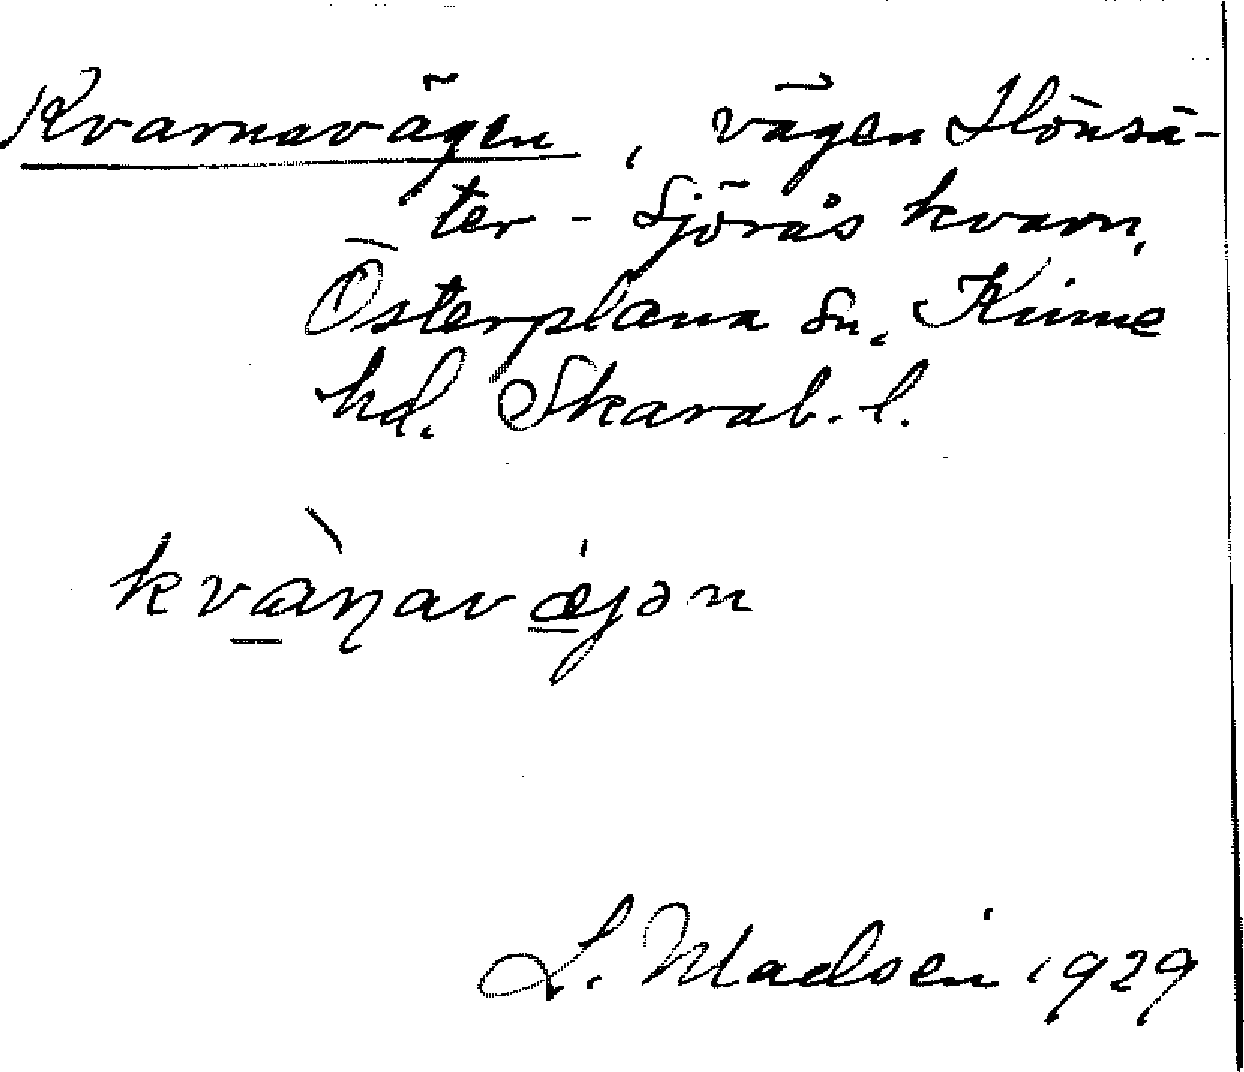 Kvarnavägen, vägen Hönsä-
ter - Sjörås kvarn,
Österplana sn, Kinne
hd. Skarab. l.
kvàṇavæ̍jən
L. Madsén 1929